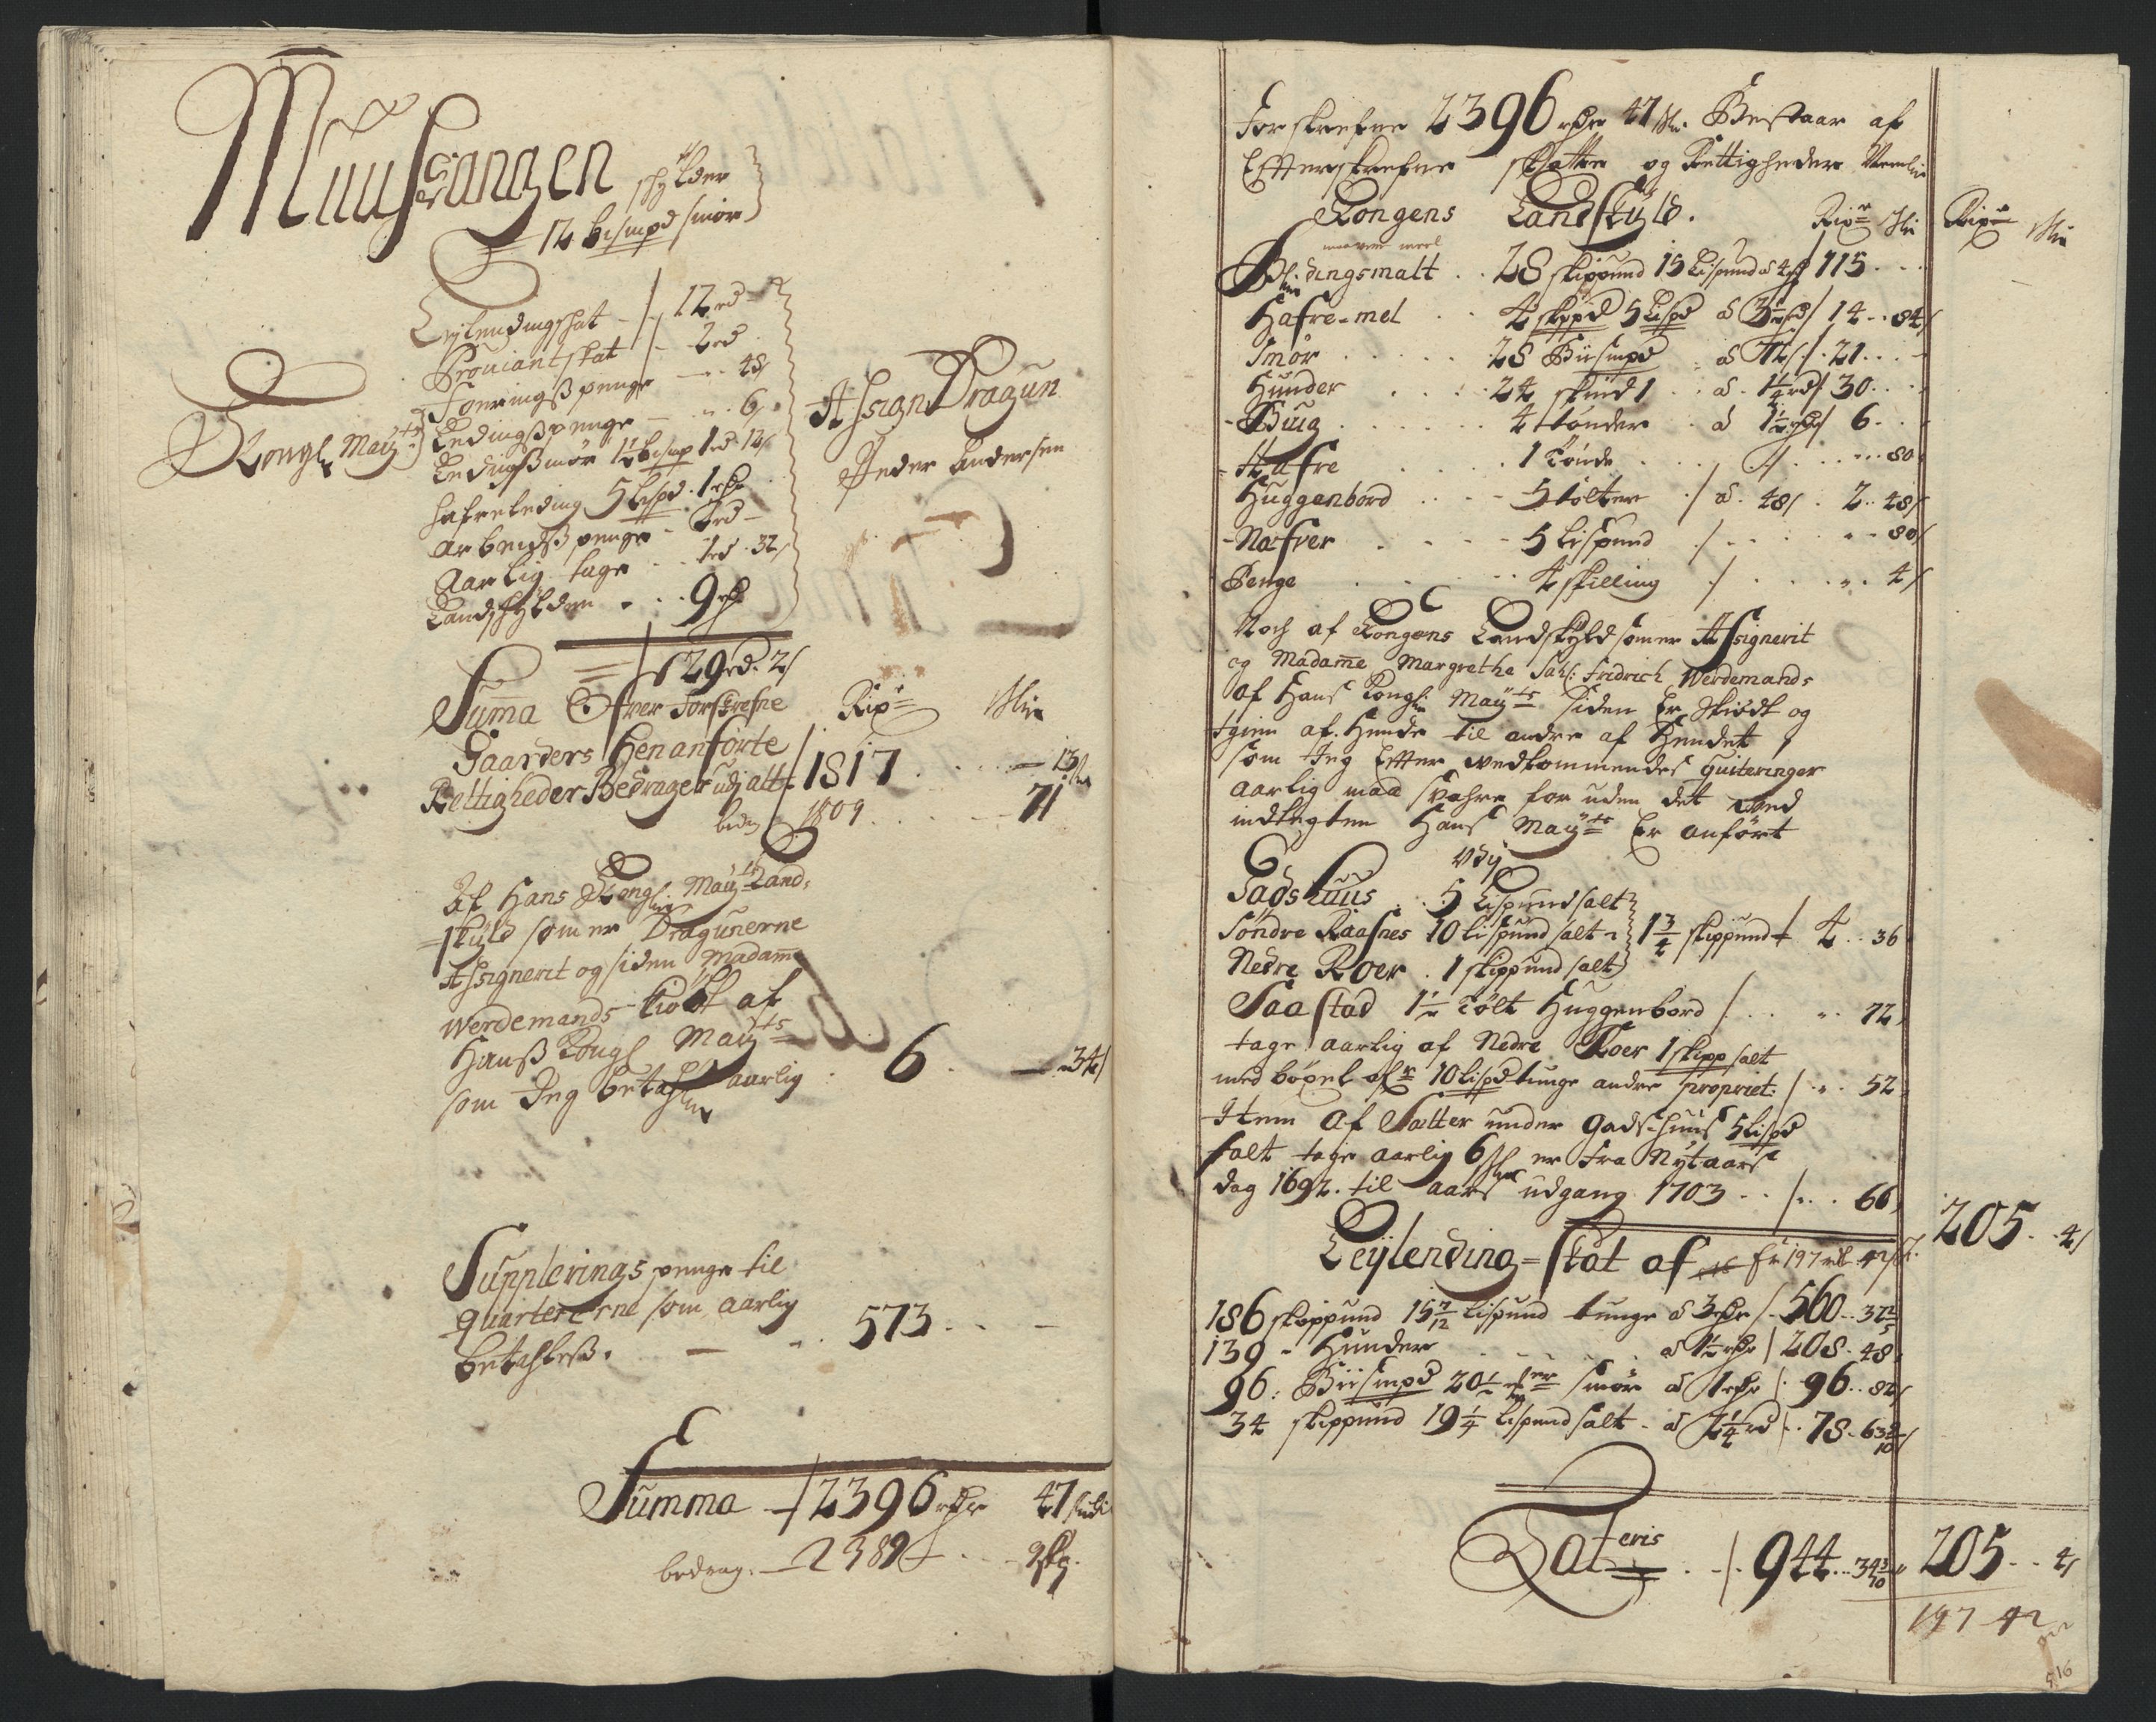 Muusangen skylder
12 bismpd smör
Leylendingsskat 12 rd
Prouiantskat 2 rd
Foeringsspenge 48 s
Ledingsspenge 6 s
Ledingssmör 1½ bismp 1 rd 12 s
hafreleding 5 lispd 1 rdr
arbeidsspenge 2 rd
Aarlig tage 1 rd 32 s
Landskylden 9 rd
Kongl Mayts
Assign Dragun
Peder Andersen
29 rd 2 s
Summa Ofver Forskrefne
Gaarders Henanförte
Rettigheder Bedrager udj alt 1817 13 s
bedr 1809 71
Af Hans Kongl: Mayts Land-
skyld som er Dragunerne
Assignerit og siden Madame
Werdemands kiöbt af
Hanss Kongl Mayts
som Jeg betahler aarlig 6 34 s
Supplerings penge til
quartererne som aarlig
betahless 573
Summa 2396 rdr 47 s
bedrag 2389 9
Forskrefne 2396 rdr 47 s Bestaar af
Effterskrefne skatter og Rettigheder Nemlig
Kongens Landskyld. Rixr s Rixr s
Bl:dingsmalt 28 skippund 15 Lispund a 4 rd 115
Hafre-mel 4 skpd 5 Lispd a 3½ rd 14 84 s
Smör 28 Biismpd a 72 s 21
Hunder 24 skind a 1¼ rd 30
Biug 4 tönder a 1½ rdr 6
Hafre 1 Tönde 80
Huggenbord 5 tölter a 48 s 2 48 s
Næfver 5 Lispund 80
Penge 4 skilling 4 s
Noch af Kongens Landskyld som er Assignerit
og Madame Margrethe Sahl: Fridrich Werdemands
af Hans Kongl: Mayts siden Er Skiödt og
igien af Hende til andre af Hendet
som Jeg Effter vedkommendes quiteringer
aarlig maa svahre for uden det ved
indtegten Hans Mayts Er anfört
Udj
Gadshuus 5 Lispund salt
Söndre Raasnes 10 lispund salt 1¾ skippund 4 36
Nedre Roer 1 skippund salt
Saastad 1½ Tölt Huggenbord 72
tage aarlig af Nedre Roer 1 skipp salt
med böxel ofr 10 lispd tunge andre propriet: 52
Item Af Sætter under Gadshuus 5 lispd
salt tage aarlig 6 s er Fra Nytaars
dag 1692 til aars udgang 1703 66
205 4 s
Leylending-skat af
186 skippund 15 7/12 lispund tunge a 3 rdr 560 37 2/5
139 Hunder a 1½ rdr 208 48
96 Biismpd 20½ mrer smör a 1 rdr 96 82 s
34 skippund 19¼ lispund salt a 2¼ rd 78 63 9/10 s
Lateris 944 34 3/10 205 4 s
197 42
516